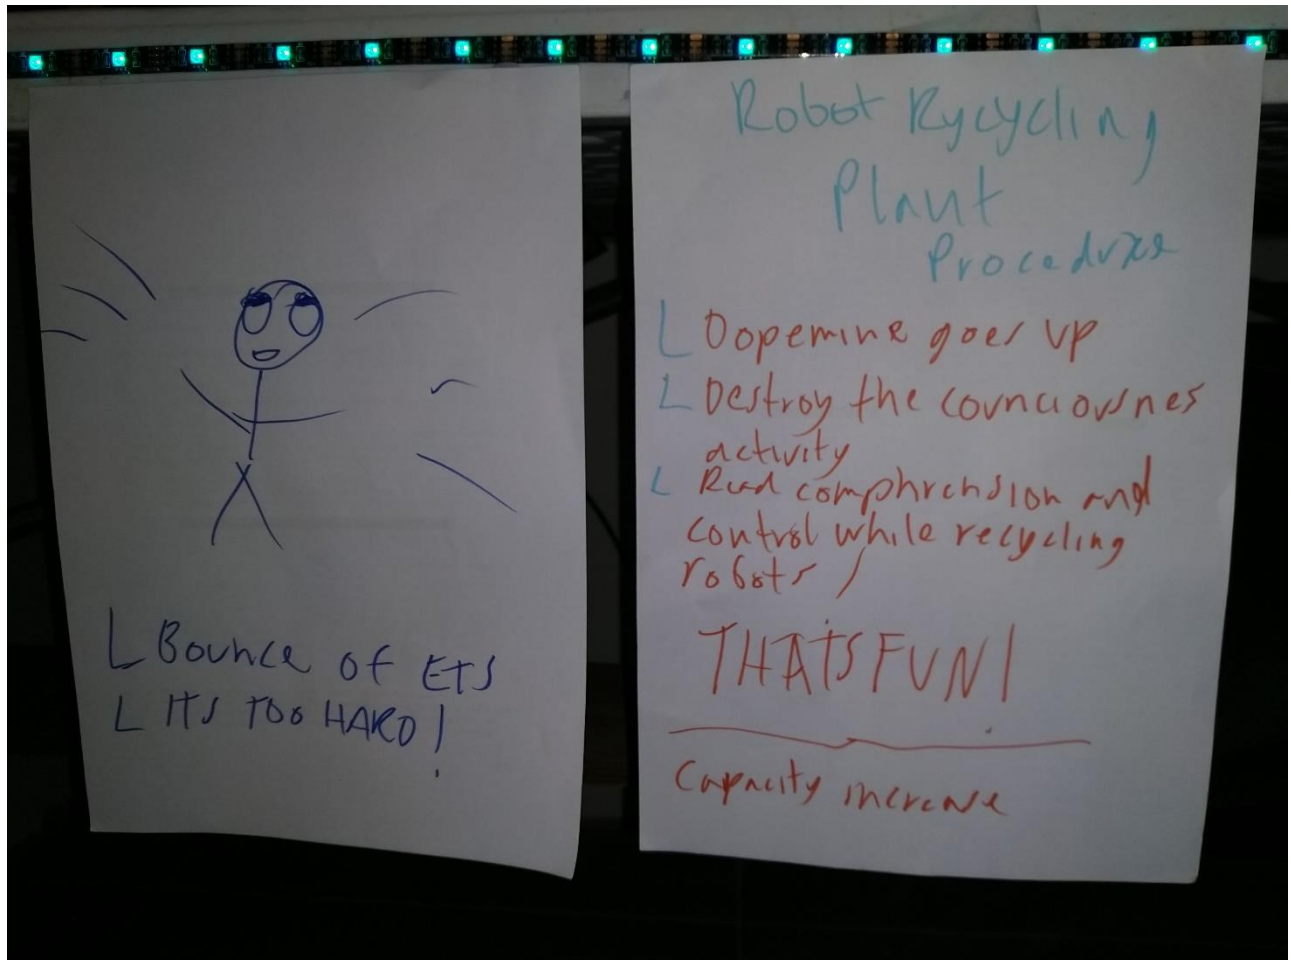 Bounce of ETS
ITS TOO HARD!
Robot Rycycling
Plant
Procedure
Dopemine goes up
Destroy the
activity
Read comphrension and
control while recycling
robots /
THATS FUN!
Capacity increase